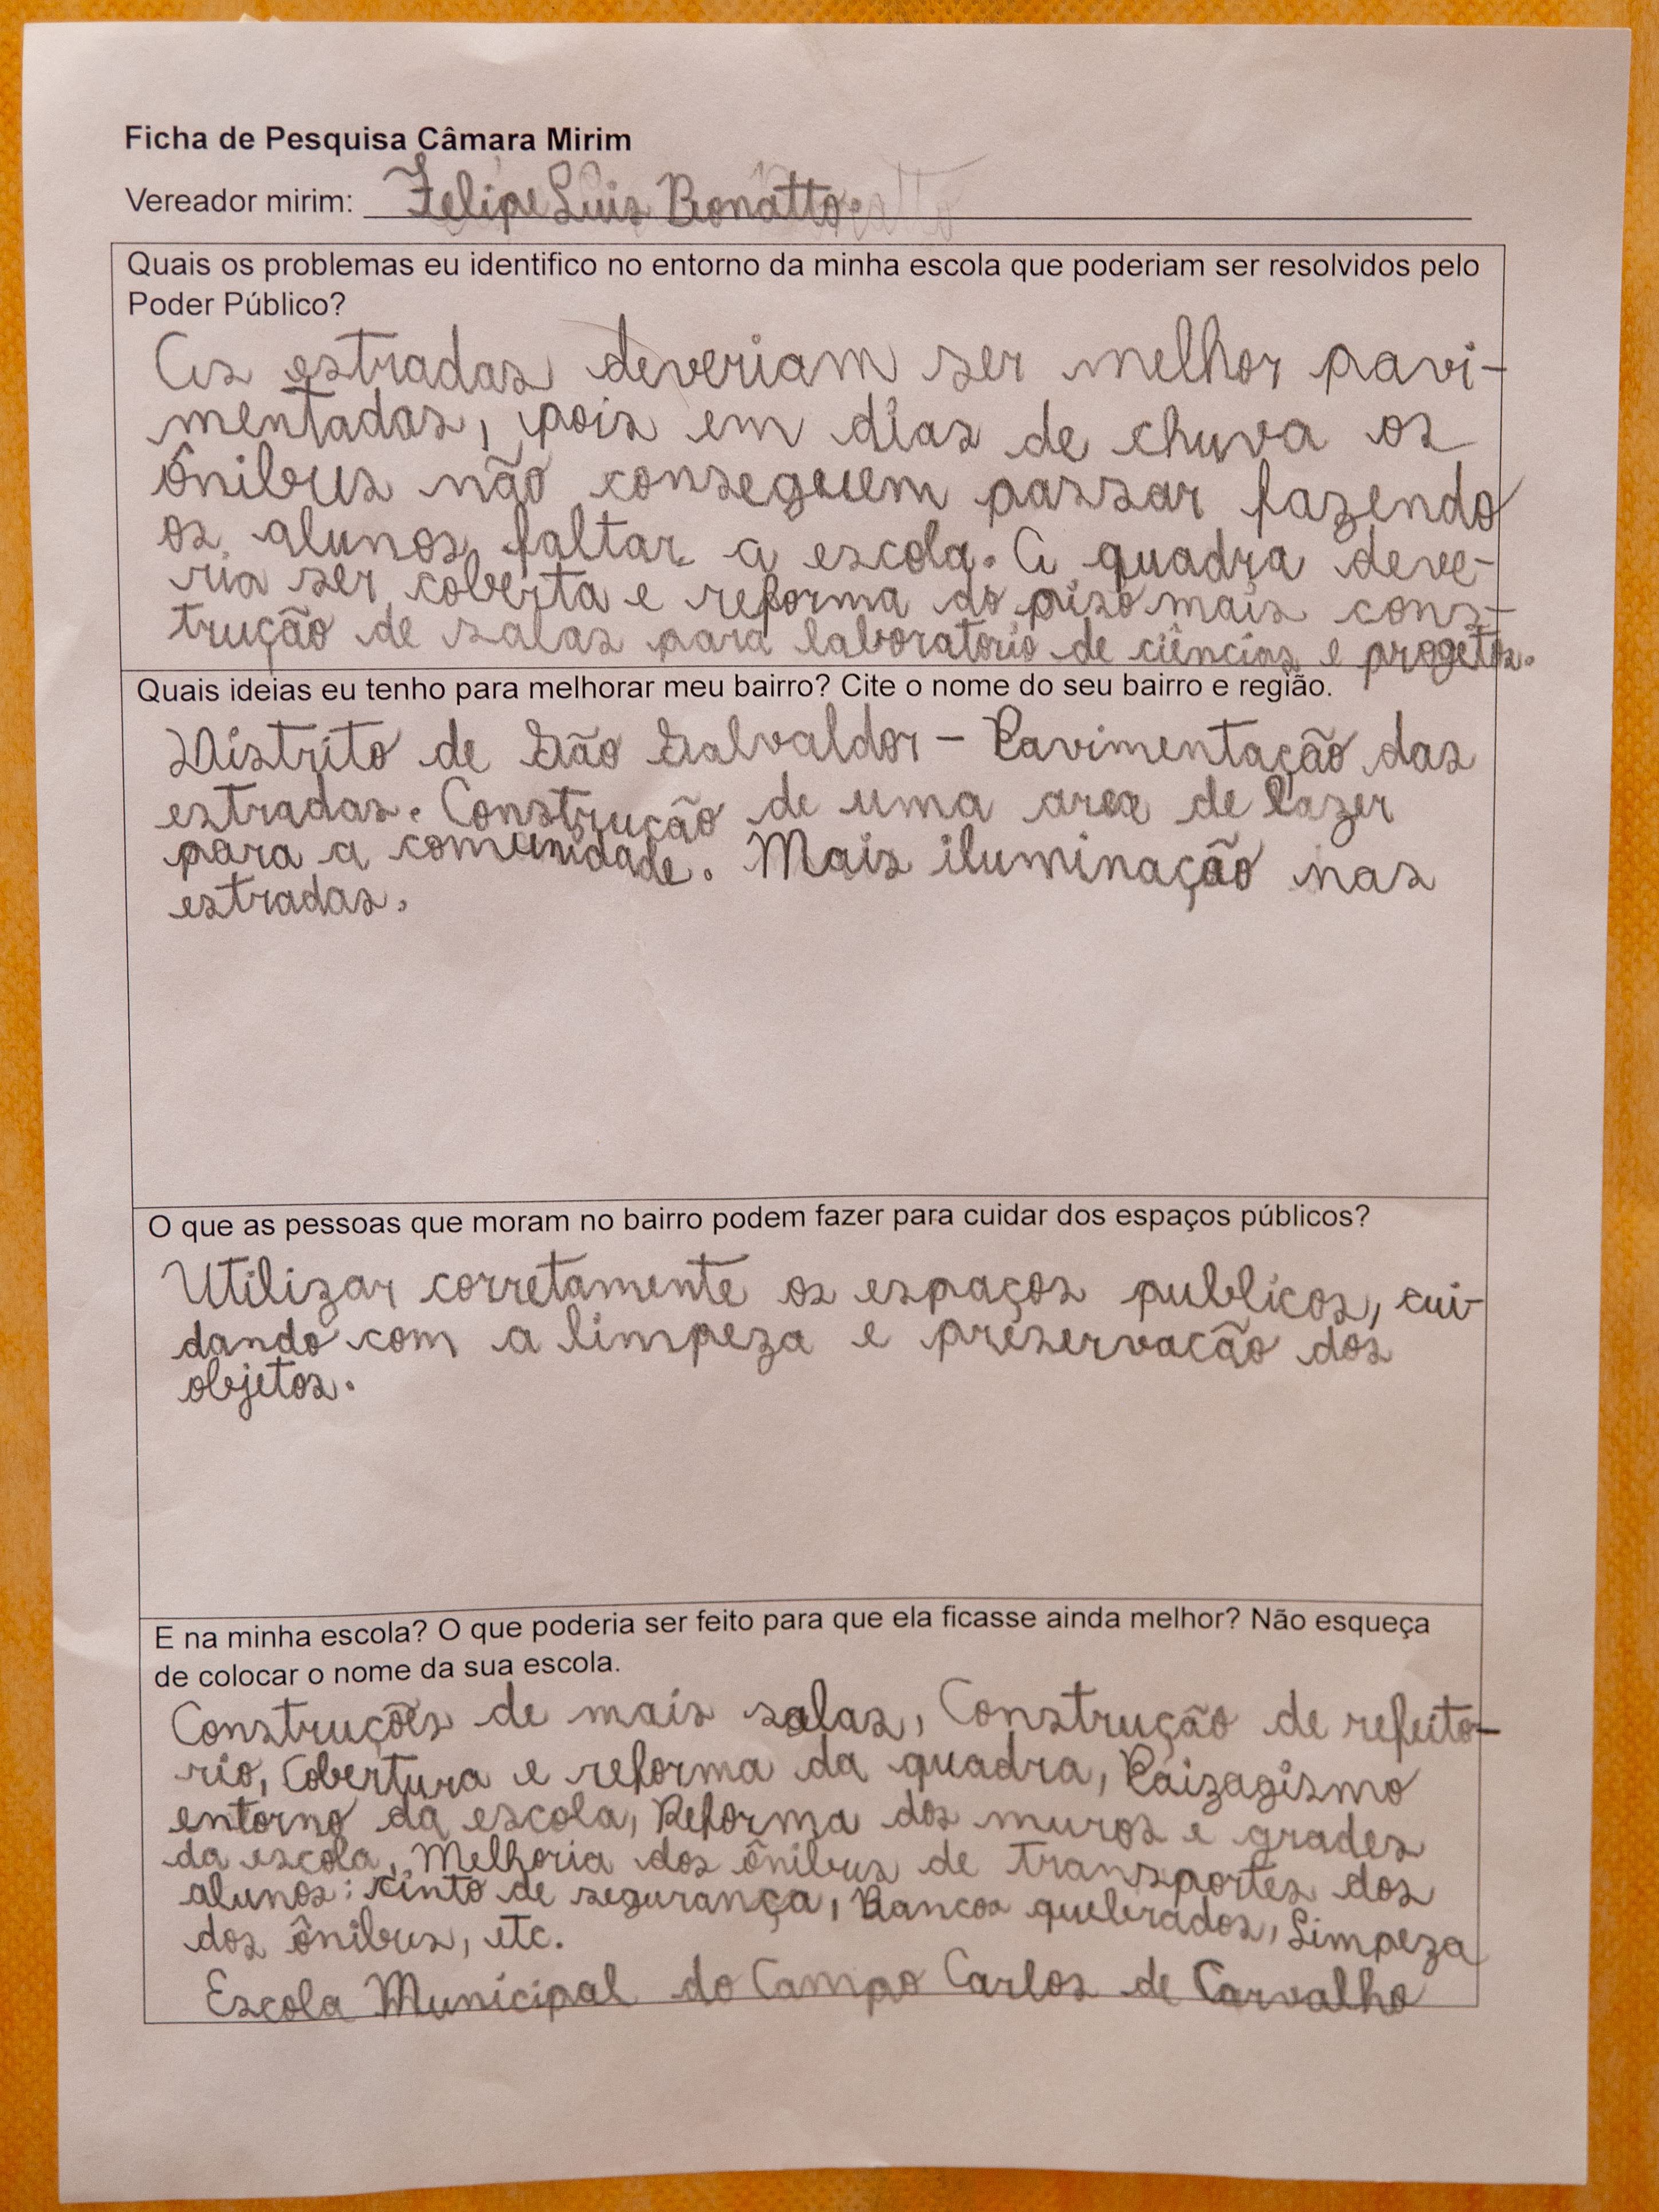 Ficha de Pesquisa Câmara Mirim
Vereador mirim: Felipe Luis Bonatto.
Quais os problemas eu identifico no entorno da minha escola que poderiam ser resolvidos pelo
Poder Público?
As estradas deveriam ser melhor pavi-
mentadas, pois em dias de chuva os
ônibus não conseguem passar fazendo
os alunos faltar a escola. A quadra deve-
ria ser coberta e reforma do piso mais cons-
trução de salas para laboratório de ciências e progetos.
Quais ideias eu tenho para melhorar meu bairro? Cite o nome do seu bairro e região.
Distrito de São Salvaldor - Pavimentação das
estradas. Construção de uma area de lazer
para a comunidade. Mais iluminação nas
estradas.
O que as pessoas que moram no bairro podem fazer para cuidar dos espaços públicos?
Utilizar corretamente os espaços publicos, cui-
dando com a limpeza e preservacão dos
objetos.
E na minha escola? O que poderia ser feito para que ela ficasse ainda melhor? Não esqueça
de colocar o nome da sua escola.
Construções de mais salas, Construção de refeito-
rio, Cobertura e reforma da quadra, Paizagismo
entorno da escola, Reforma dos muros e grades
da escola, Melhoria dos ônibus de transportes dos
alunos: cinto de segurança, Bancos quebrados, Limpeza
dos ônibus, etc.
Escola Municipal do Campo Carlos de Carvalho